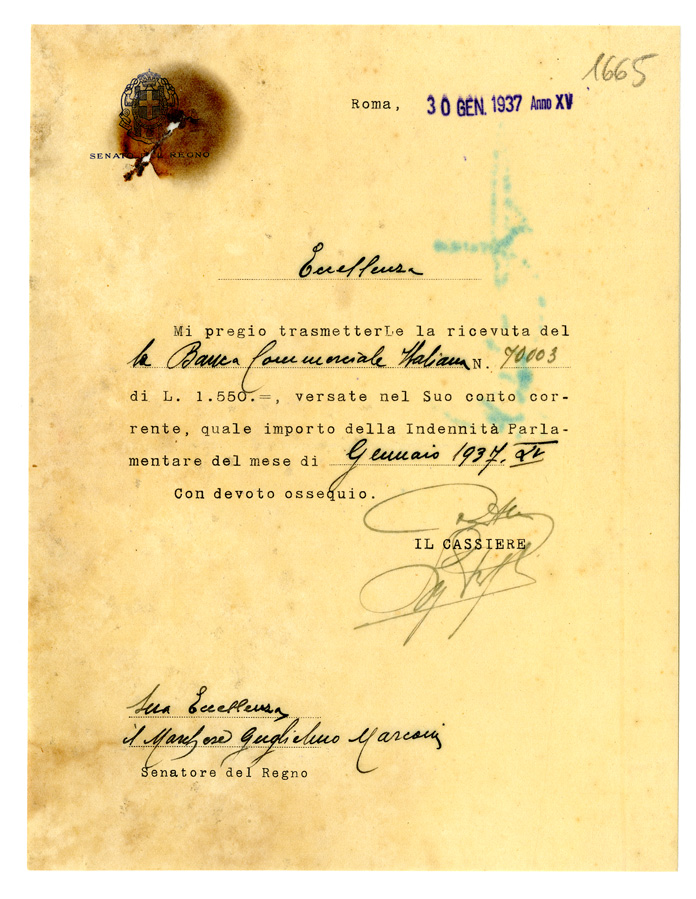 1665
Roma, 30 GEN. 1937 Anno XV
SENATO DEL REGNO
Eccellenza
Mi pregio trasmetterLe la ricevuta del
la Banca Commerciale Italiana N. 70003
di L. 1.550.=, versate nel Suo conto cor-
rente, quale importo della Indennità Parla-
mentare del mese di Gennaio 1937. XV
Con devoto ossequio.
IL CASSIERE
Sua Eccellenza
il Marchese Guglielmo Marconi
Senatore del Regno